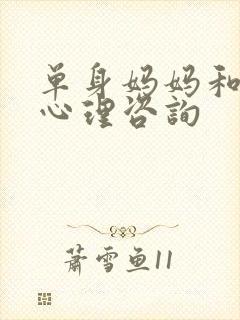 单身妈妈和
心理咨询
萧雪鱼11